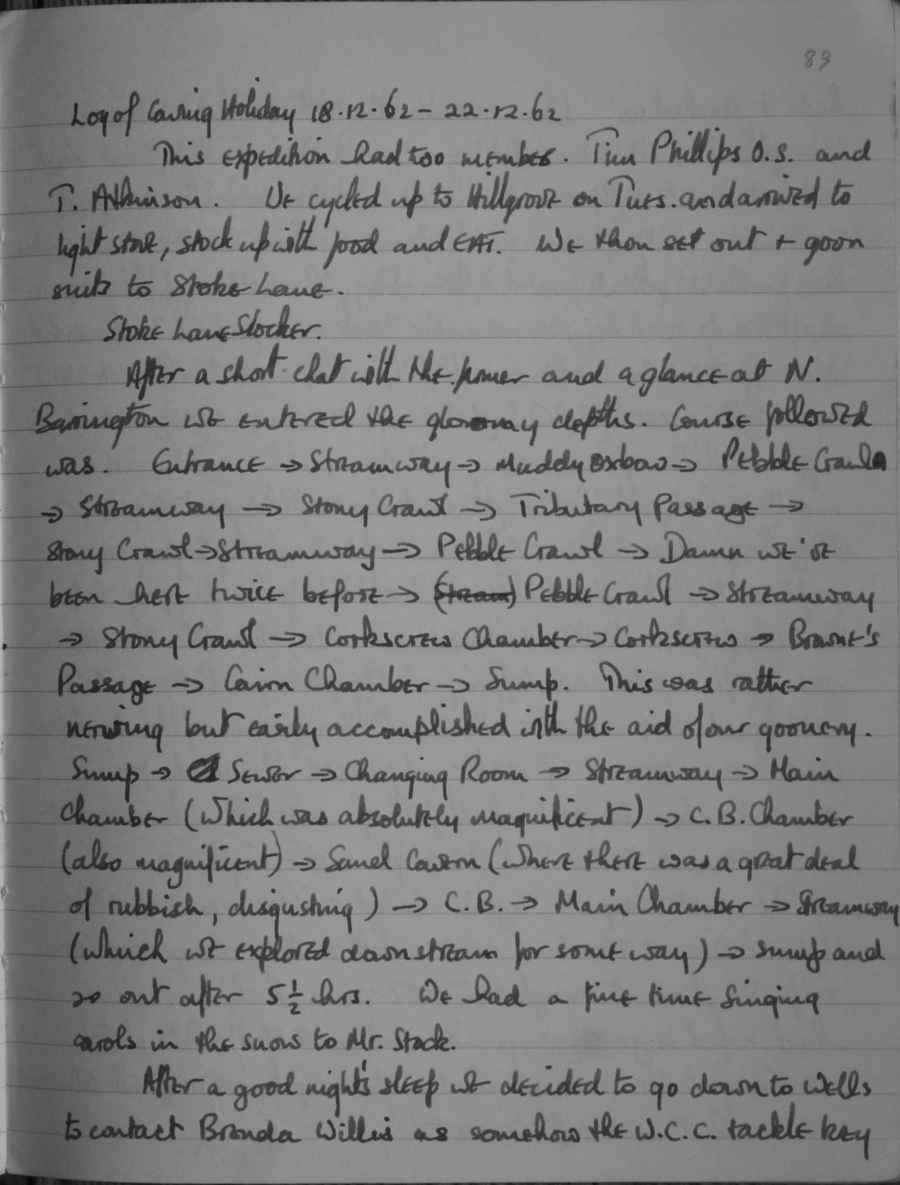 89
Log of Caving Holiday 18.12.62 – 22.12.62
This expedition had too members. Tim Phillips O.S. and
T. Atkinson. We cycled up to Hillgrove on Tues. and arrived to
light stove, stock up with food and EAT. We then set out + goon
suits to Stoke Lane.
Stoke Lane Slocker.
After a short chat with the farmer and a glance at N.
Barrington we entered the gloomay depths. Course followed
was. Entrance → Streamway → Muddy oxbow → Pebble Crawl
→ Streamway → Stony Crawl → Tributary Passage →
Stony Crawl → Streamway → Pebble Crawl → Damn we've
been here twice before → (Stream) Pebble Crawl → Streamway
→ Stony Crawl → Corkscrew Chamber → Corkscrew → Browne's
Passage → Cairn Chamber → Sump. This was rather
nerving but easily accomplished with the aid of our goonery.
Sump → Sewer → Changing Room → Streamway → Main
Chamber (which was absolutely magnificent) → C.B. Chamber
(also magnificent) → Sand Cavern (where there was a great deal
of rubbish, disgusting) → C.B. → Main Chamber → Streamway
(which we explored downstream for some way) → sump and
so out after 5½ hrs. We had a fine time singing
carols in the snow to Mr. Stock.
After a good night's sleep we decided to go down to Wells
to contact Brenda Willis as somehow the W.C.C. tackle key